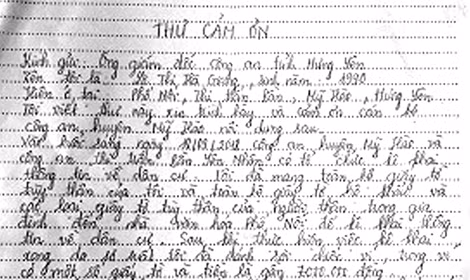 THƯ CẢM ƠN
Kính gửi: Ông giám đốc công an tỉnh Hưng Yên
Tên tôi là: Lê Thị Hà Giang, sinh năm: 1990
Hiện ở tại Phố Nối, Thị trấn Bần, Mỹ Hào, Hưng Yên
Tôi viết thư này xin trình bày và cảm ơn cán bộ
công an huyện Mỹ Hào nội dung sau
Vào hồi sáng ngày công an huyện Mỹ Hào và
công an thị trấn Bần Yên Nhân có tổ chức kê khai
thông tin về dân cư tôi đã mang toàn bộ giấy tờ
tuỳ thân của tôi và toàn bộ giấy tờ hộ khẩu và
các loại giấy tờ tuỳ thân của người thân trong gia
đình đến nhà văn hoá Phố Nối để kê khai thông
tin về dân cư. Sau khi thực hiện việc kê khai
xong do sơ suất tôi đã đánh rơi chiếc ví, trong ví
có một số giấy tờ và tiền là gần đồng